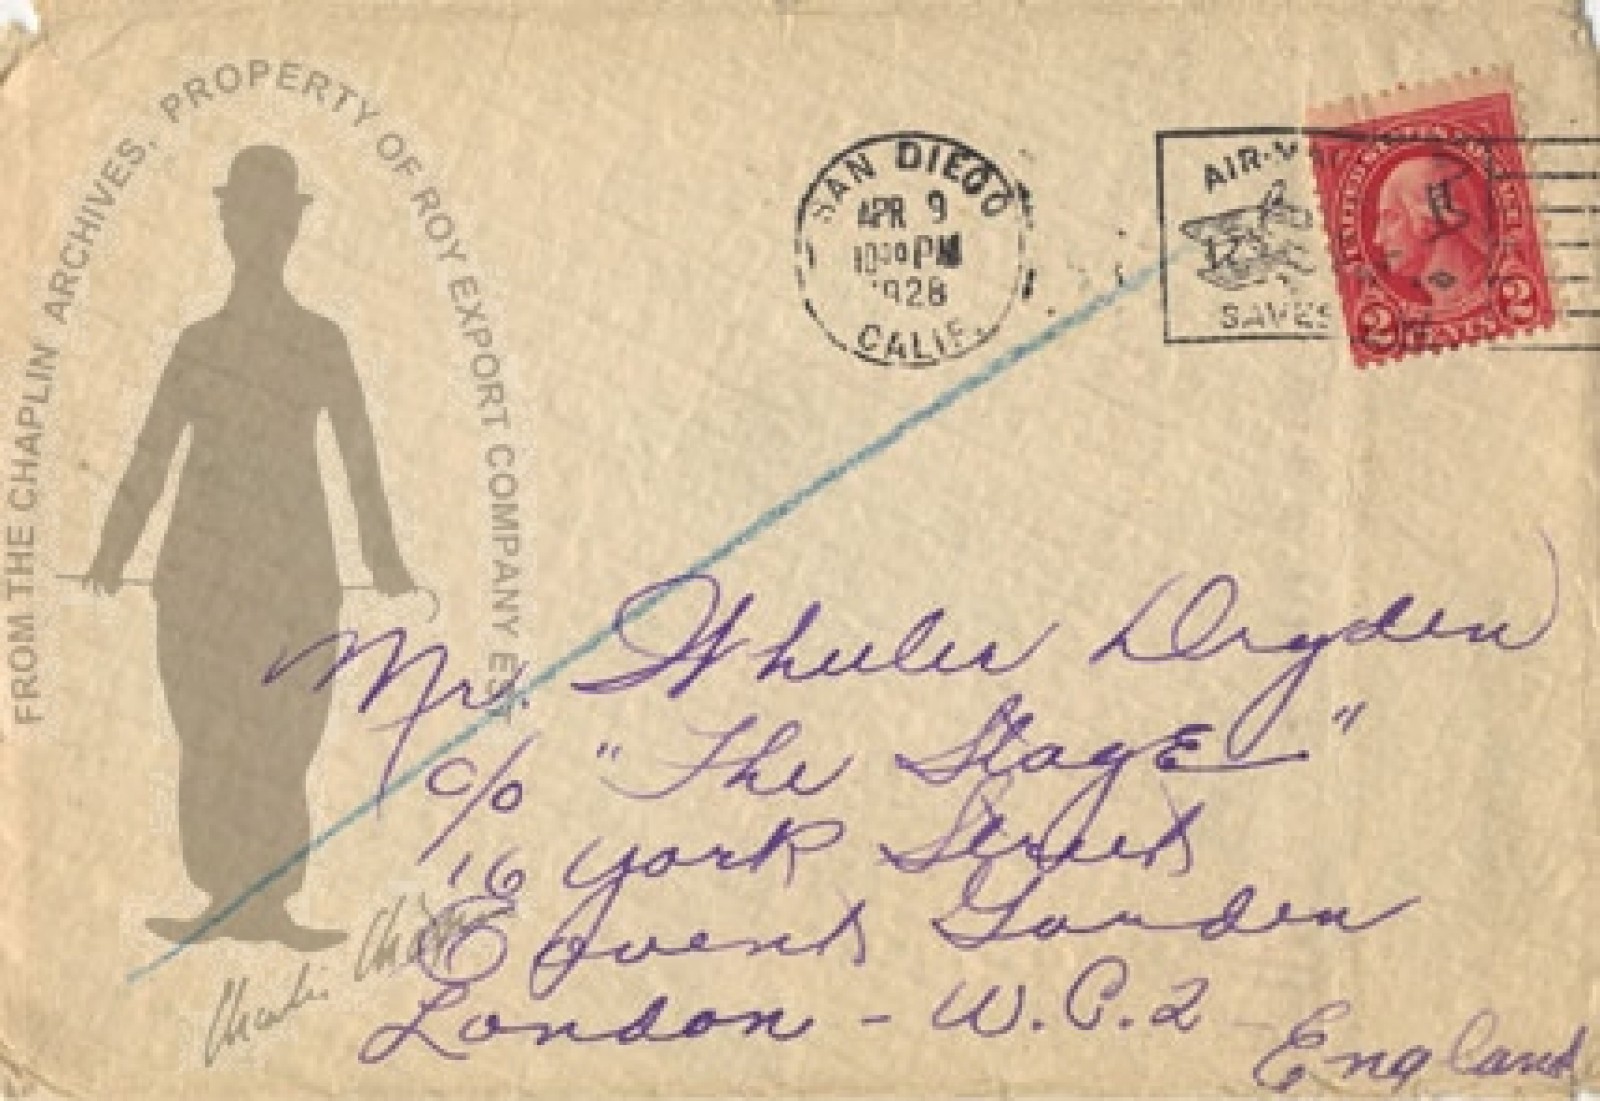 FROM THE CHAPLIN ARCHIVES, PROPERTY OF ROY EXPORT COMPANY EST
SAN DIEGO
APR 9
PM
1928
CALIF.
AIR-MAIL
SAVES
2 CENTS 2
Mr. Wheeler Dryden
c/o "The Stage"
16 York Street
Covent Garden
London - W.C.2
England
Charlie Chaplin